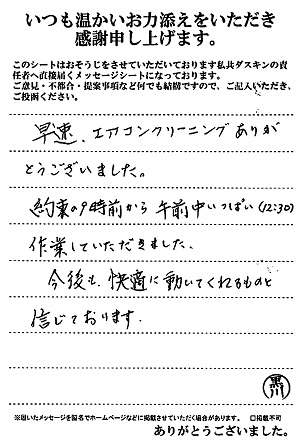 いつも温かいお力添えをいただき
感謝申し上げます。
このシートはおそうじをさせていただいております私共ダスキンの責
任者へ直接届くメッセージシートになっております。
ご意見・不都合・提案事項など何でも結構ですので、ご記入いただき、
ご投函ください。
早速、エアコンクリーニングありが
とうございました。
約束の9時前から午前中いっぱい(12:30)
作業していただきました。
今後も、快適に動いてくれるものと
信じております。
黒川
※届いたメッセージを匿名でホームページなどに掲載させていただく場合があります。 □掲載不可
ありがとうございました。